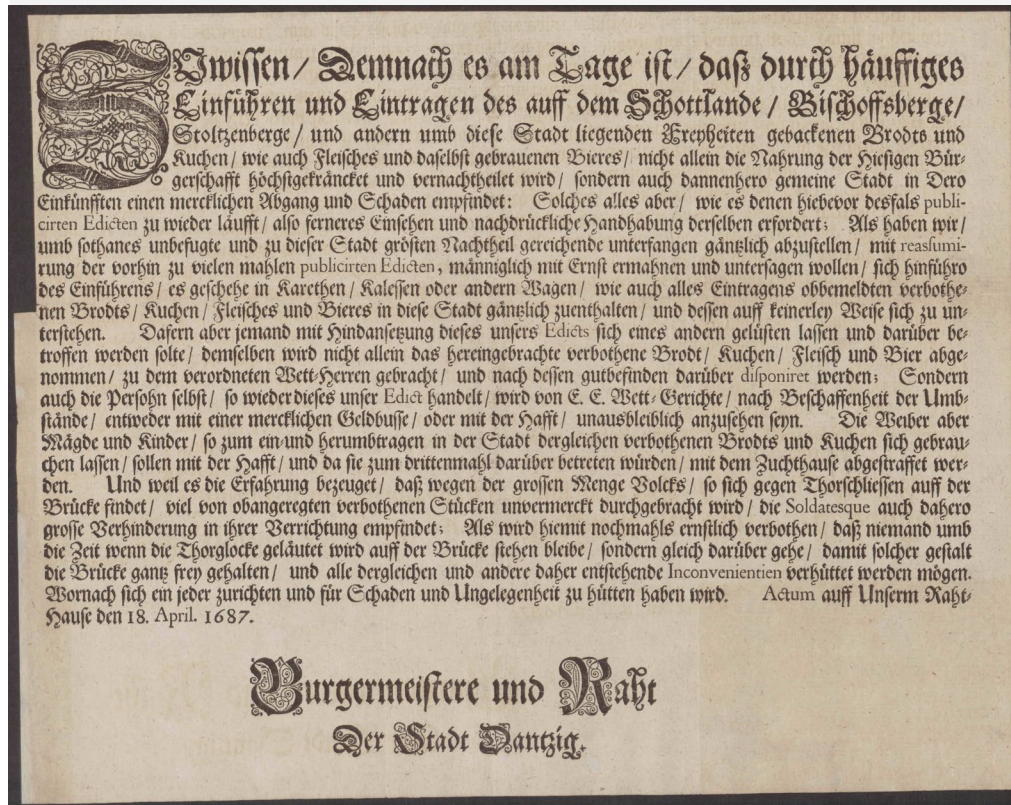 ZUwissen / Demnach es am Tage ist / daß durch häuffiges
Einführen und Eintragen des auff dem Schottlande / Bischoffsberge /
Stoltzenberge / und andern umb diese Stadt liegenden Freyheiten gebackenen Brodts und
Kuchen / wie auch Fleisches und daselbst gebrauenen Bieres / nicht allein die Nahrung der Hiesigen Bür-
gerschafft höchstgekräncket und vernachtheilet wird / sondern auch dannenhero gemeine Stadt in Dero
Einkünfften einen mercklichen Abgang und Schaden empfindet: Solches alles aber / wie es denen hiebevor desfals publi-
cirten Edicten zu wieder läufft / also ferneres Einsehen und nachdrückliche Handhabung derselben erfordert; Als haben wir /
umb sothanes unbefugte und zu dieser Stadt grösten Nachtheil gereichende unterfangen gäntzlich abzustellen / mit reassumi-
rung der vorhin zu vielen mahlen publicirten Edicten, männiglich mit Ernst ermahnen und untersagen wollen / sich hinführo
des Einführens / es geschehe in Karethen / Kalessen oder andern Wagen / wie auch alles Eintragens obbemeldten verbothe-
nen Brodts / Kuchen / Fleisches und Bieres in diese Stadt gäntzlich zuenthalten / und dessen auff keinerley Weise sich zu un-
terstehen. Dafern aber jemand mit Hindansetzung dieses unsers Edicts sich eines andern gelüsten lassen und darüber be-
troffen werden solte / demselben wird nicht allein das hereingebrachte verbothene Brodt / Kuchen / Fleisch und Bier abge-
nommen / zu dem verordneten Wett-Herren gebracht / und nach dessen gutbefinden darüber disponiret werden; Sondern
auch die Persohn selbst / so wieder dieses unser Edict handelt / wird von E. E. Wett-Gerichte / nach Beschaffenheit der Umb-
stände / entweder mit einer mercklichen Geldbusse / oder mit der Hafft / unausbleiblich anzusehen seyn. Die Weiber aber
Mägde und Kinder / so zum ein-und herumbtragen in der Stadt dergleichen verbothenen Brodts und Kuchen sich gebrau-
chen lassen / sollen mit der Hafft / und da sie zum drittenmahl darüber betreten würden / mit dem Zuchthause abgestraffet wer-
den. Und weil es die Erfahrung bezeuget / daß wegen der grossen Menge Volcks / so sich gegen Thorschliessen auff der
Brücke findet / viel von obangeregten verbothenen Stücken unvermerckt durchgebracht wird / die Soldatesque auch dahero
grosse Verhinderung in ihrer Verrichtung empfindet; Als wird hiemit nochmahls ernstlich verbothen / daß niemand umb
die Zeit wenn die Thorglocke geläutet wird auff der Brücke stehen bleibe / sondern gleich darüber gehe / damit solcher gestalt
die Brücke gantz frey gehalten / und alle dergleichen und andere daher entstehende Inconvenientien verhüttet werden mögen.
Wornach sich ein jeder zurichten und für Schaden und Ungelegenheit zu hütten haben wird. Actum auff Unserm Raht-
Hause den 18. April. 1687.
Burgermeistere und Raht
Der Stadt Dantzig.